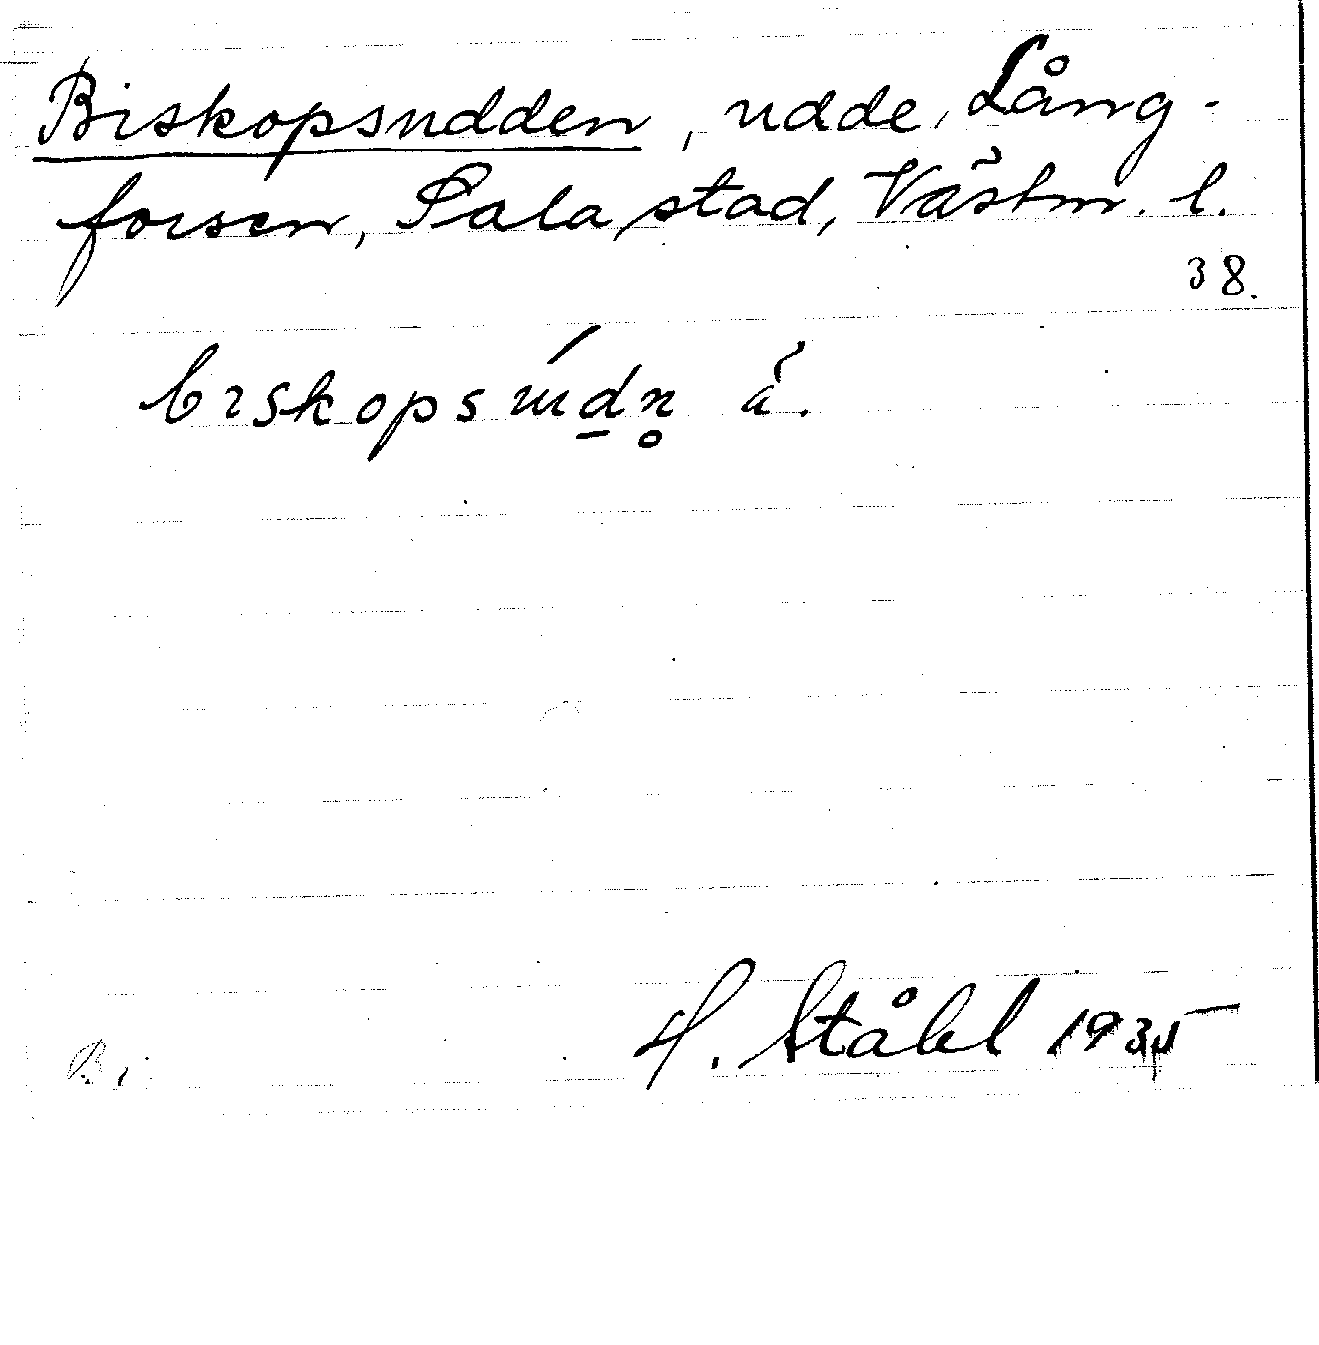 Biskopsudden, udde, Lång-
forsen, Sala stad, Västm. l.
38.
H. Ståhl 1935
Bi